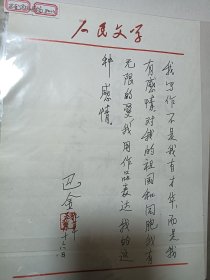 人民文学
我写作不是我有才华，而是我
有感情对我的祖国和同胞我有
无限的爱我用作品表达我的这
种感情。
巴金